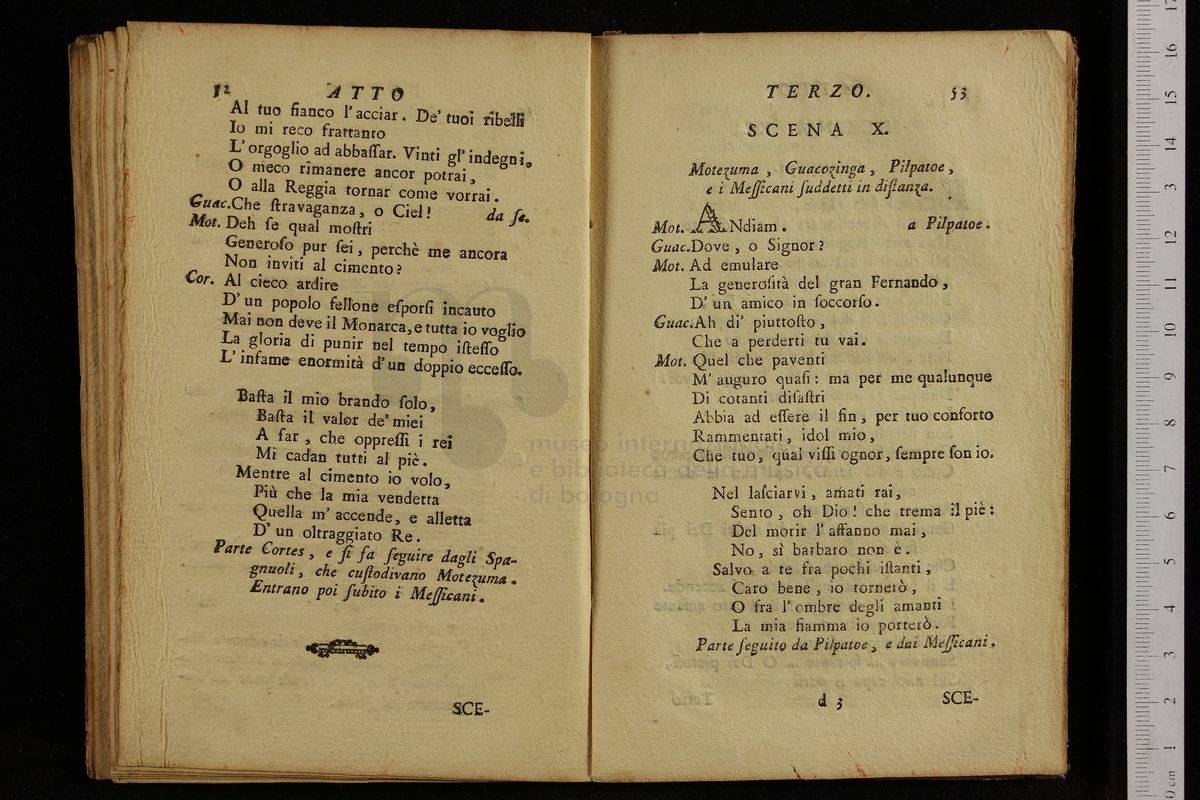 52 ATTO
Al tuo fianco l'acciar. De' tuoi ribelli
Io mi reco frattanto
L'orgoglio ad abbaſſar. Vinti gl'indegni,
O meco rimanere ancor potrai,
O alla Reggia tornar come vorrai.
Guac.Che ſtravaganza, o Ciel! da ſe.
Mot. Deh ſe qual moſtri
Generoſo pur ſei, perchè me ancora
Non inviti al cimento?
Cor. Al cieco ardire
D'un popolo fellone eſporſi incauto
Mai non deve il Monarca, e tutta io voglio
La gloria di punir nel tempo iſteſſo
L'infame enormità d'un doppio ecceſſo.
Baſta il mio brando ſolo,
Baſta il valor de' miei
A far, che oppreſſi i rei
Mi cadan tutti al piè.
Mentre al cimento io volo,
Più che la mia vendetta
Quella m'accende, e alletta
D'un oltraggiato Re.
Parte Cortes, e ſi fa ſeguire dagli Spa-
gnuoli, che cuſtodivano Motezuma.
Entrano poi ſubito i Meſſicani.
SCE-
TERZO. 53
SCENA X.
Motezuma, Guacozinga, Pilpatoe,
e i Meſſicani ſuddetti in diſtanza.
Mot. ANdiam. a Pilpatoe.
Guac.Dove, o Signor?
Mot. Ad emulare
La generoſità del gran Fernando,
D'un amico in ſoccorſo.
Guac.Ah di' piuttoſto,
Che a perderti tu vai.
Mot. Quel che paventi
M'auguro quaſi: ma per me qualunque
Di cotanti diſaſtri
Abbia ad eſſere il fin, per tuo conforto
Rammentati, idol mio,
Che tuo, qual viſſi ognor, ſempre ſon io.
Nel laſciarvi, amati rai,
Sento, oh Dio! che trema il piè:
Del morir l'affanno mai,
No, sì barbaro non è.
Salvo a te fra pochi iſtanti,
Caro bene, io tornerò,
O fra l'ombre degli amanti
La mia fiamma io porterò.
Parte ſeguito da Pilpatoe, e dai Meſſicani.
d 3 SCE-
museo internazionale
e biblioteca della musica
di bologna